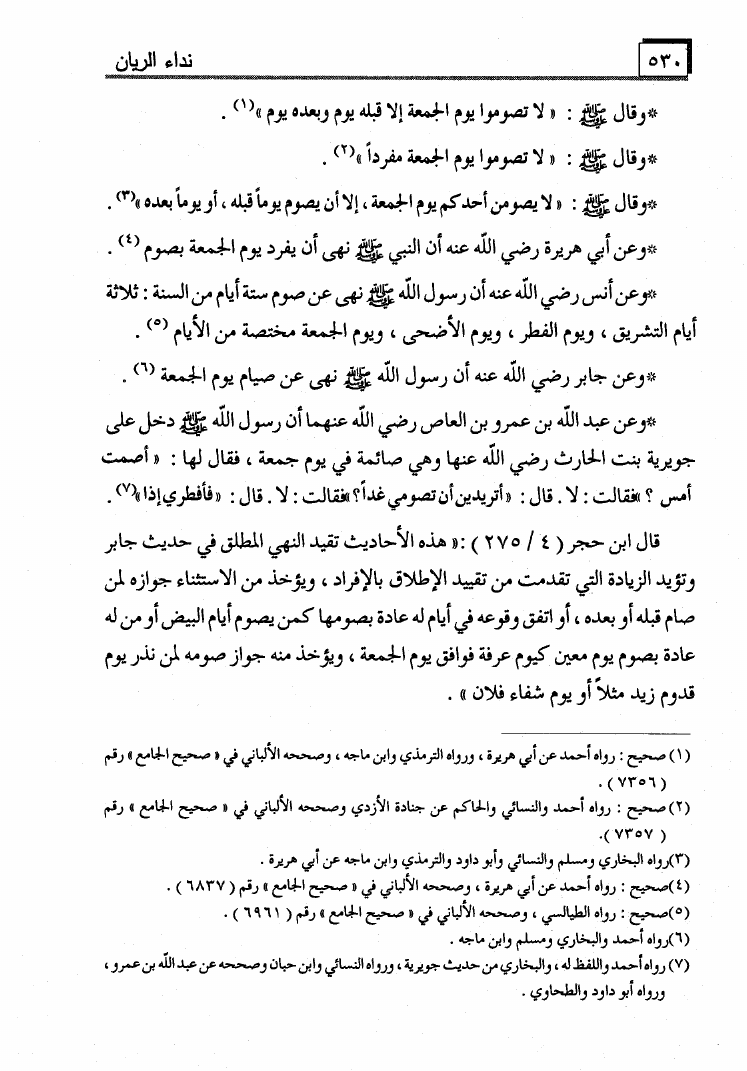 ٥٣٠
نداء الريان
*وقال ﷺ : « لا تصوموا يوم الجمعة إلا قبله يوم وبعده يوم »(١) .
*وقال ﷺ : « لا تصوموا يوم الجمعة مفرداً »(٢) .
*وقال ﷺ : « لا يصومن أحدكم يوم الجمعة ، إلا أن يصوم يوماً قبله ، أو يوماً بعده »(٣) .
*وعن أبي هريرة رضي الله عنه أن النبي ﷺ نهى أن يفرد يوم الجمعة بصوم (٤) .
*وعن أنس رضي الله عنه أن رسول الله ﷺ نهى عن صوم ستة أيام من السنة : ثلاثة
أيام التشريق ، ويوم الفطر ، ويوم الأضحى ، ويوم الجمعة مختصة من الأيام (٥) .
*وعن جابر رضي الله عنه أن رسول الله ﷺ نهى عن صيام يوم الجمعة (٦) .
*وعن عبد الله بن عمرو بن العاص رضي الله عنهما أن رسول الله ﷺ دخل على
جويرية بنت الحارث رضي الله عنها وهي صائمة في يوم جمعة ، فقال لها : « أصمت
أمس ؟ »فقالت : لا . قال : «أتريدين أن تصومي غداً؟ »فقالت : لا . قال : «فأفطري إذا»(٧) .
قال ابن حجر ( ٤ / ٢٧٥ ) :« هذه الأحاديث تقيد النهي المطلق في حديث جابر
وتؤيد الزيادة التي تقدمت من تقييد الإطلاق بالإفراد ، ويؤخذ من الاستثناء جوازه لمن
صام قبله أو بعده ، أو اتفق وقوعه في أيام له عادة بصومها كمن يصوم أيام البيض أو من له
عادة بصوم يوم معين كيوم عرفة فوافق يوم الجمعة ، ويؤخذ منه جواز صومه لمن نذر يوم
قدوم زيد مثلاً أو يوم شفاء فلان » .
(١) صحيح : رواه أحمد عن أبي هريرة ، ورواه الترمذي وابن ماجه ، وصححه الألباني في « صحيح الجامع » رقم
( ٧٣٥٦ ) .
(٢)صحيح : رواه أحمد والنسائي والحاكم عن جنادة الأزدي وصححه الألباني في « صحيح الجامع » رقم
( ٧٣٥٧ ).
(٣)رواه البخاري ومسلم والنسائي وأبو داود والترمذي وابن ماجه عن أبي هريرة .
(٤)صحيح : رواه أحمد عن أبي هريرة ، وصححه الألباني في « صحيح الجامع » رقم ( ٦٨٣٧ ) .
(٥)صحيح : رواه الطيالسي ، وصححه الألباني في « صحيح الجامع » رقم ( ٦٩٦١ ) .
(٦)رواه أحمد والبخاري ومسلم وابن ماجه .
(٧) رواه أحمد واللفظ له ، والبخاري من حديث جويرية ، ورواه النسائي وابن حبان وصححه عن عبد الله بن عمرو ،
ورواه أبو داود والطحاوي .